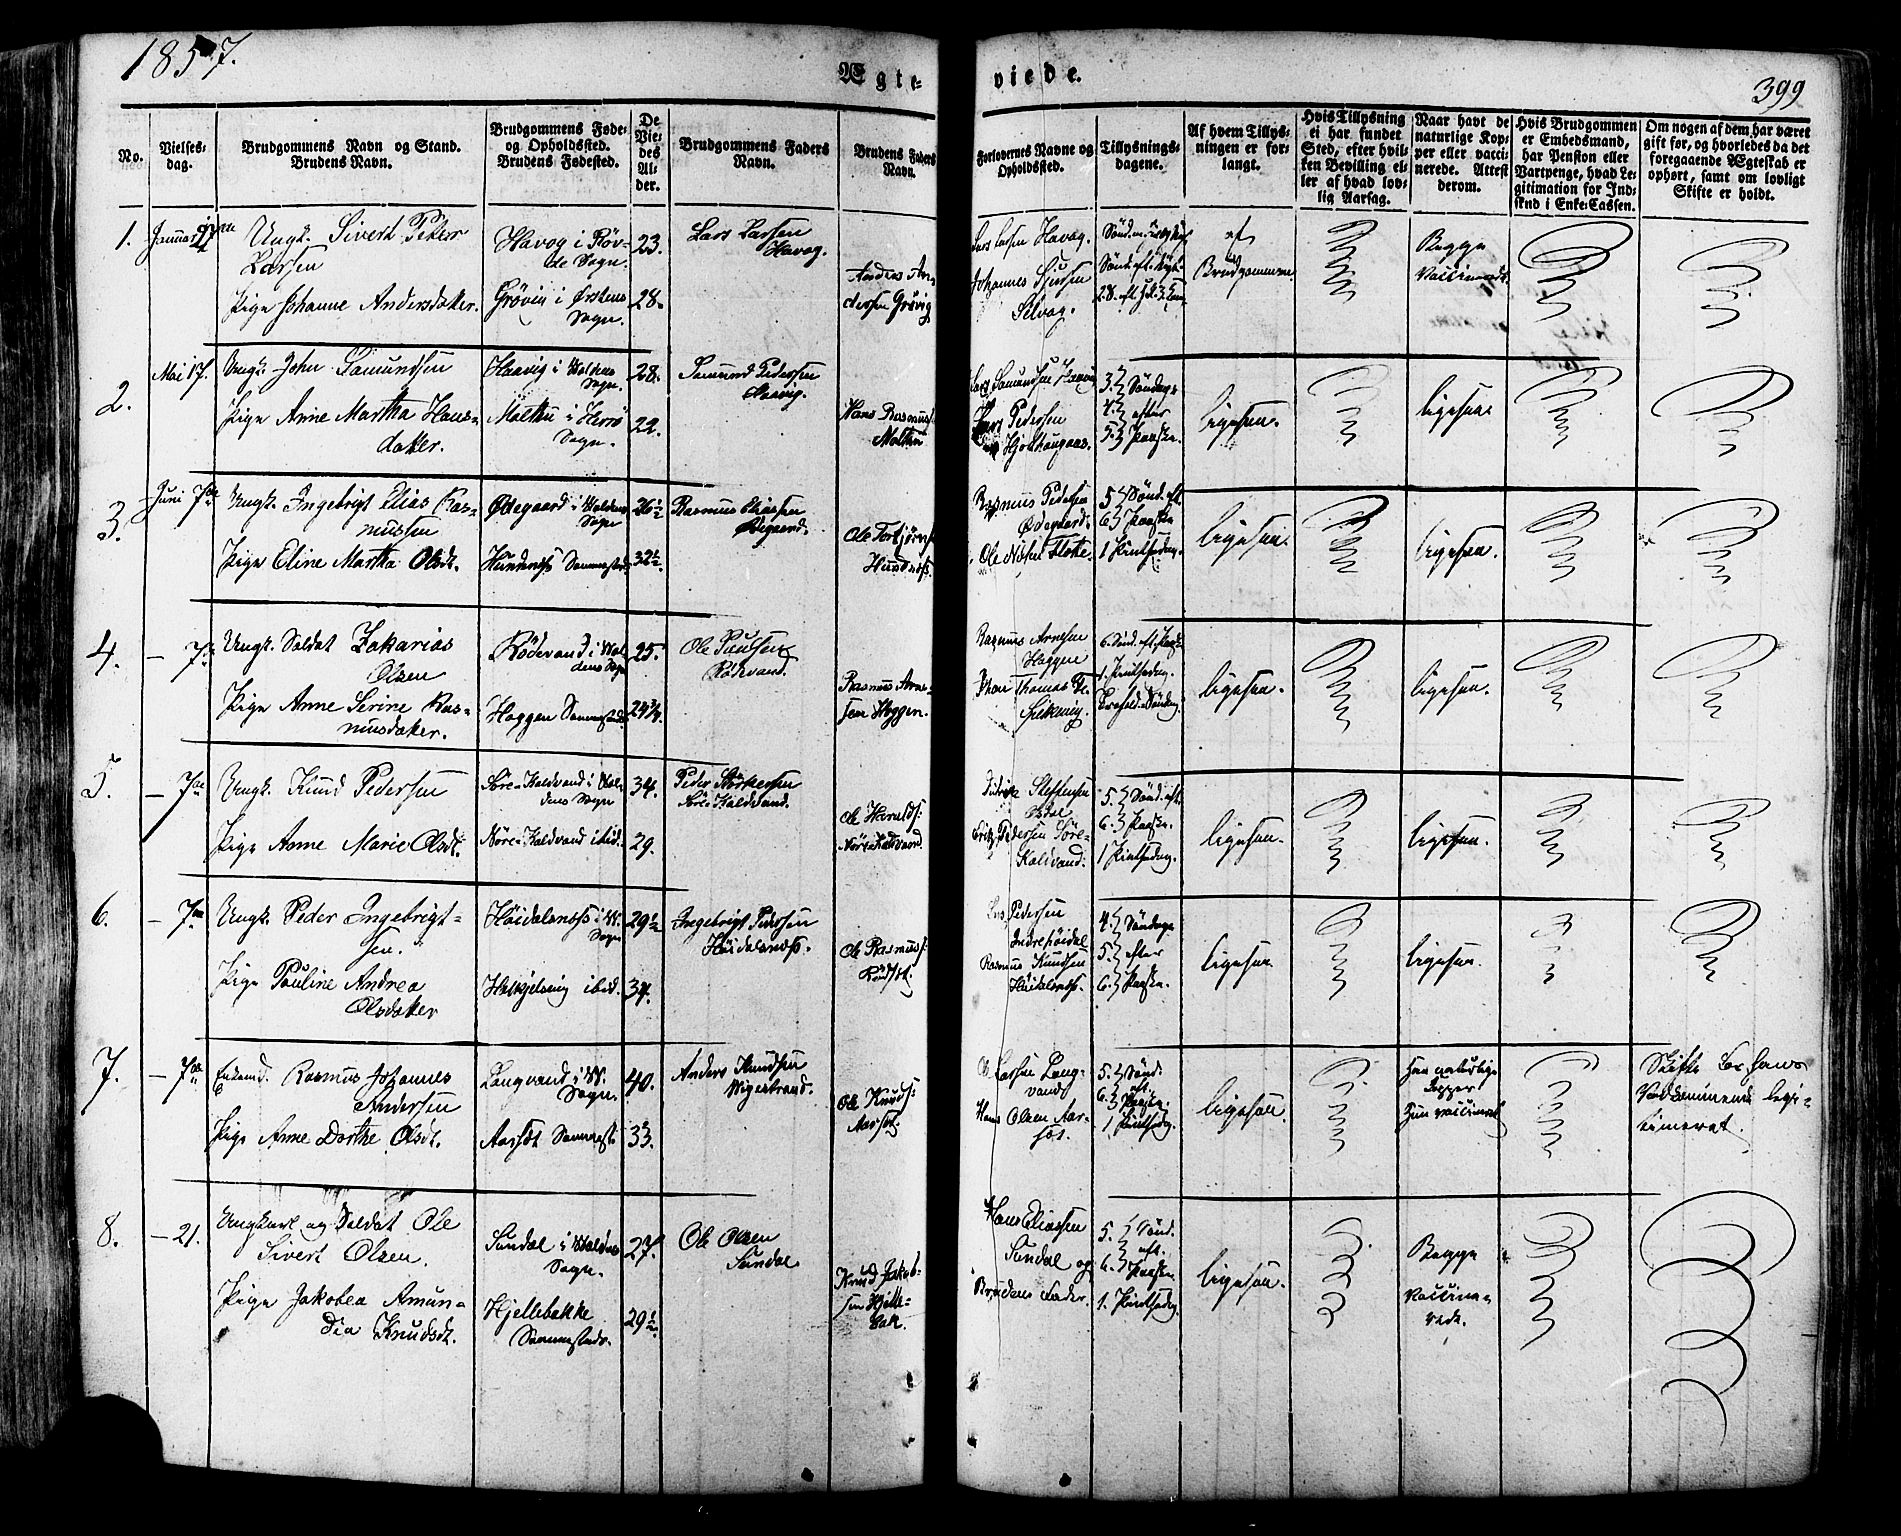 1857.
Ægte-
viede.
399
No.
Vielses-
dag.
Brudgommens Navn og Stand.
Brudens Navn.
Brudgommens Føde-
og Opholdssted.
Brudens Fødested.
De
Vie-
des
Al-
der.
Brudgommens Faders
Navn.
Brudens Faders
Navn.
Forlovernes Navne og
Opholdssted.
Tillysnings-
dagene.
Af hvem Tillys-
ningen er for-
langt.
Hvis Tillysning
ei har fundet
Sted, efter hvil-
ken Bevilling el-
ler af hvad lov-
lig Aarsag.
Naar havt de
naturlige Kop-
per eller vacci-
nerede. Attest
derom.
Hvis Brudgommen
er Embedsmand,
har Pension eller
Vartpenge, hvad Le-
gitimation for Ind-
skud i Enke-Cassen.
Om nogen af dem har været
gift før, og hvorledes da det
foregaaende Ægteskab er
ophørt, samt om lovligt
Skifte er holdt.
1.
Januar
Ungk. Sivert Peter
Larsen
Pige Johanne Andersdatter.
Havog i Røv-
de Sogn.
Grøvig i Ørstens
Sogn.
23.
28.
Lars Larsen
Havog.
Anders An-
dersen Grøvig
Lars Larsen Havog.
Johannes
Selvog.
af
Brudgommen
Begge
Vaccinerede
2.
Mai 17.
Ungk. John Samundsen
Pige Anne Martha Hans-
datter.
Haavig i Woldens
Sogn.
Molthu i Herrø
Sogn.
28.
22.
Samund Pedersen
Haavig.
Hans Rasmuss.
Molthu
Lars Samundsen Haavig
Lars Pedersen
Hjorthaugaas.
3. Søndage
4. efter
5. Paaske.
ligesaa.
ligesaa.
3.
Juni 7de
Ungk. Ingebrigt Elias Ras-
mussen
Pige Eline Martha Olsdt.
Ødegaard i Woldens
Sogn
Hundnæss Sammested
26½
32½
Rasmus Eliassen
Ødegaard.
Ole Torbjørns.
Hundnæss.
Rasmus Pedersen
Ødegaard.
Ole Nilsen Flote
5. Sønd. eft.
6. Paaske
1 Pintsedag.
ligesaa.
ligesaa.
4.
— 7de
Ungk. Soldat Zakarias
Olsen
Pige Anne Serine Ras-
musdatter.
Rødevand i Wol-
dens Sogn
Heggen Sammested
25.
24¾
Ole Paulsen
Rødevand.
Rasmus Arne-
sen Heggen.
Rasmus Arnesen
Heggen
Thomas
6. Sønd. eft. Paaske
1. Pintsedag.
ligesaa.
ligesaa.
5.
— 7de
Ungk. Knud Pedersen
Pige Anne Marie Olsdt.
Søre-Kaldvand i Wol-
dens Sogn
Nøre-Kaldvand ibid.
34.
29.
Peder Størkersen
Søre-Kaldvand.
Ole Haralds:
Nøre-Kaldvand
Didrik Steffensen
Pedersen Søre-
Kaldvand.
5. Sønd. eft.
6. Paaske.
1 Pintsedag.
ligesaa.
ligesaa.
6.
— 7de
Ungk. Peder Ingebrigt-
sen.
Pige Pauline Andrea
Olsdatter
Høidalsnæss i W.
Sogn
Halkjelsvig ibid.
29½
34.
Ingebrigt Pedersen
Høidalsnæss.
Ole Rasmuss:
Lars Pedersen
Indrehøidal
Rasmus Knudsen
Høidalsnæss.
4. Søndage
5. efter
6. Paaske.
ligesaa.
ligesaa.
7.
— 7de
Enkemd. Rasmus Johannes
Andersen
Pige Anne Dorthe Olsdt.
Langvand i W.
Sogn.
Aarset Sammest:
40.
33.
Anders Knudsen
Wigestrand.
Ole Knuds:
Aarset.
Larsen Lang-
vand
Hans Olsen Aar-
set.
5. Sønd.
6. eft. Paaske.
1 Pintsedag.
ligesaa.
Han naturlige
Kopper
Hun vaccineret
Skifte
Vedkommende legi-
timeret.
8.
— 21.
Ungkarl og Soldat Ole
Sivert Olsen.
Pige Jakobea Amun-
dia Knudsdt.
Sundal i Woldens
Sogn.
Hjellebakke
Sammesteds.
27.
29½
Ole Olsen
Sundal
Knud Jakob-
sen Hjelle-
bak.
Hans Eliassen
Sundal og
Brudens Fader.
5. Sønd.
eft.
6. Paaske.
1. Pintsedag.
ligesaa.
Begge
Vaccine-
rede.